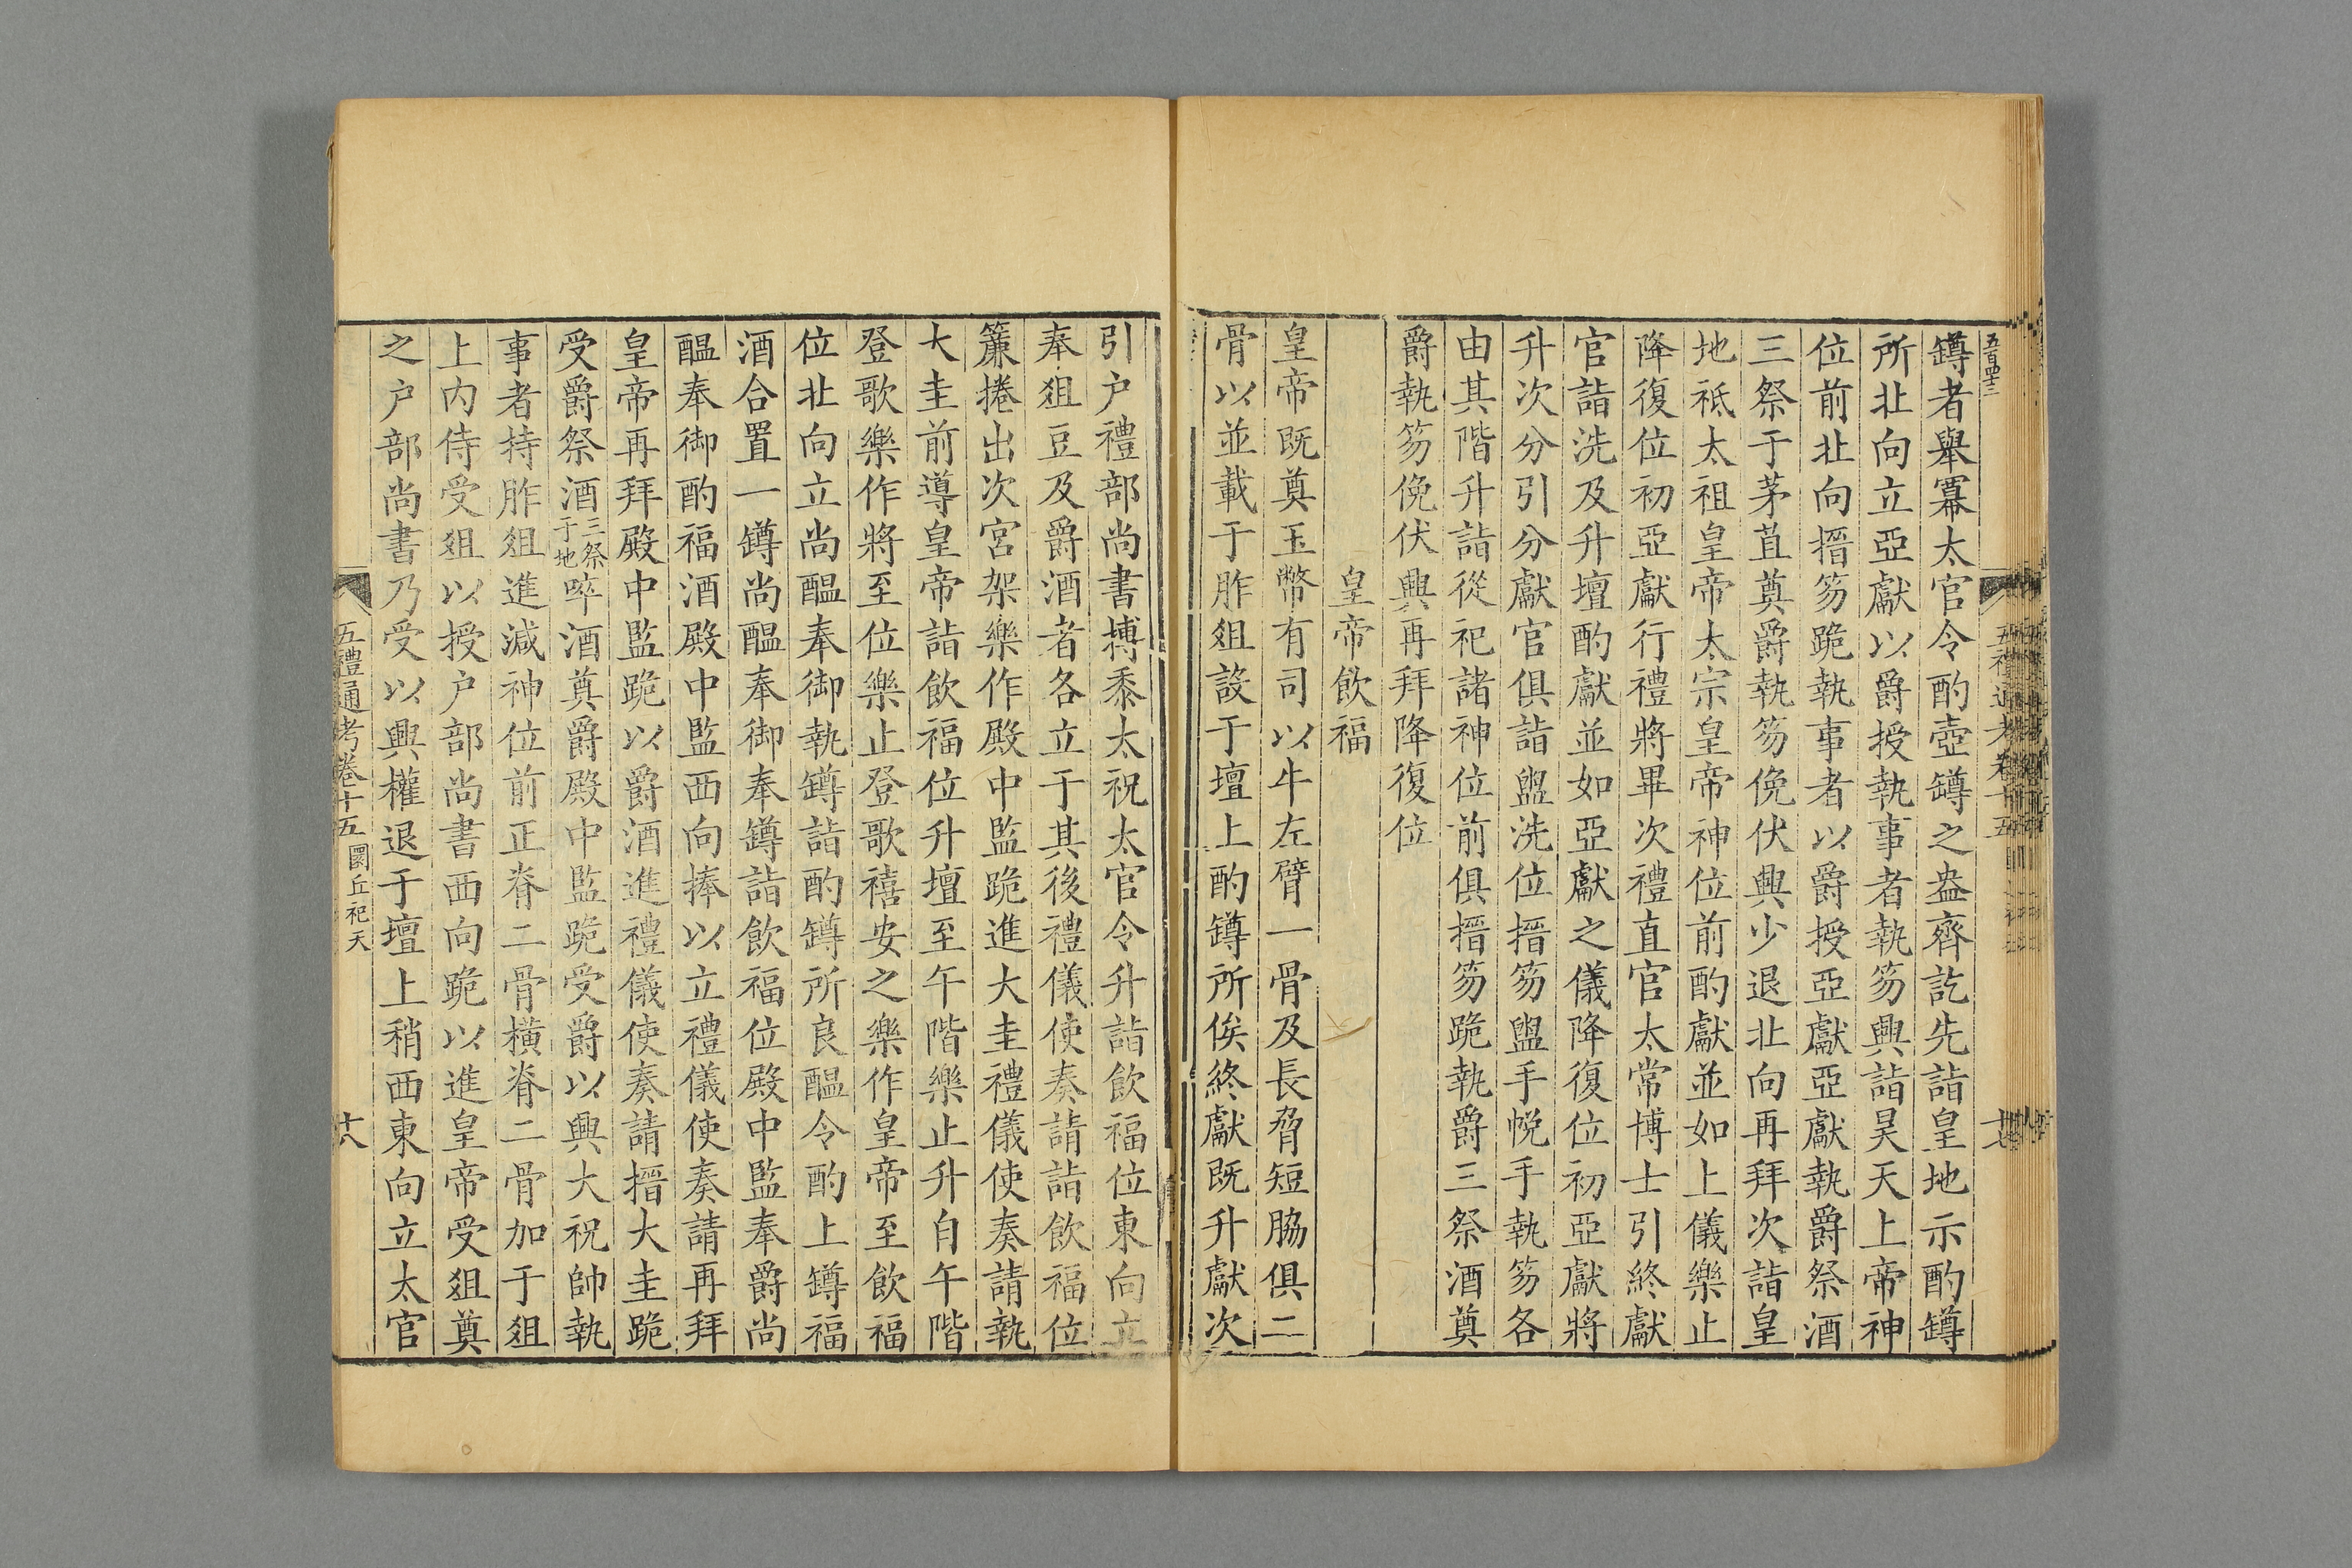 五百四十三
五禮通考卷十五
十七
罇者舉冪太官令酌壺罇之盎齊訖先詣皇地示酌罇
所北向立亞獻以爵授執事者執笏興詣昊天上帝神
位前北向搢笏跪執事者以爵授亞獻亞獻執爵祭酒
三祭于茅苴奠爵執笏俛伏興少退北向再拜次詣皇
地祗太祖皇帝太宗皇帝神位前酌獻並如上儀樂止
降復位初亞獻行禮將畢次禮直官太常博士引終獻
官詣洗及升壇酌獻並如亞獻之儀降復位初亞獻將
升次分引分獻官俱詣盥洗位搢笏盥手帨手執笏各
由其階升詣從祀諸神位前俱搢笏跪執爵三祭酒奠
爵執笏俛伏興再拜降復位
皇帝飲福
皇帝既奠玉幣有司以牛左臂一骨及長脅短脇俱二
骨以並載于胙俎設于壇上酌罇所俟終獻既升獻次
引户禮部尚書搏黍太祝太官令升詣飲福位東向立
奉俎豆及爵酒者各立于其後禮儀使奏請詣飲福位
簾捲出次宮架樂作殿中監跪進大圭禮儀使奏請執
大圭前導皇帝詣飲福位升壇至午階樂止升自午階
登歌樂作將至位樂止登歌禧安之樂作皇帝至飲福
位北向立尚醖奉御執罇詣酌罇所良醖令酌上罇福
酒合置一罇尚醖奉御奉罇詣飲福位殿中監奉爵尚
醖奉御酌福酒殿中監西向捧以立禮儀使奏請再拜
皇帝再拜殿中監跪以爵酒進禮儀使奏請搢大圭跪
受爵祭酒三祭于地啐酒奠爵殿中監跪受爵以興大祝帥執
事者持胙俎進減神位前正脊二骨橫脊二骨加于俎
上内侍受俎以授户部尚書西向跪以進皇帝受俎奠
之户部尚書乃受以興權退于壇上稍西東向立太官
五禮通考卷十五 圜丘祀天
十八